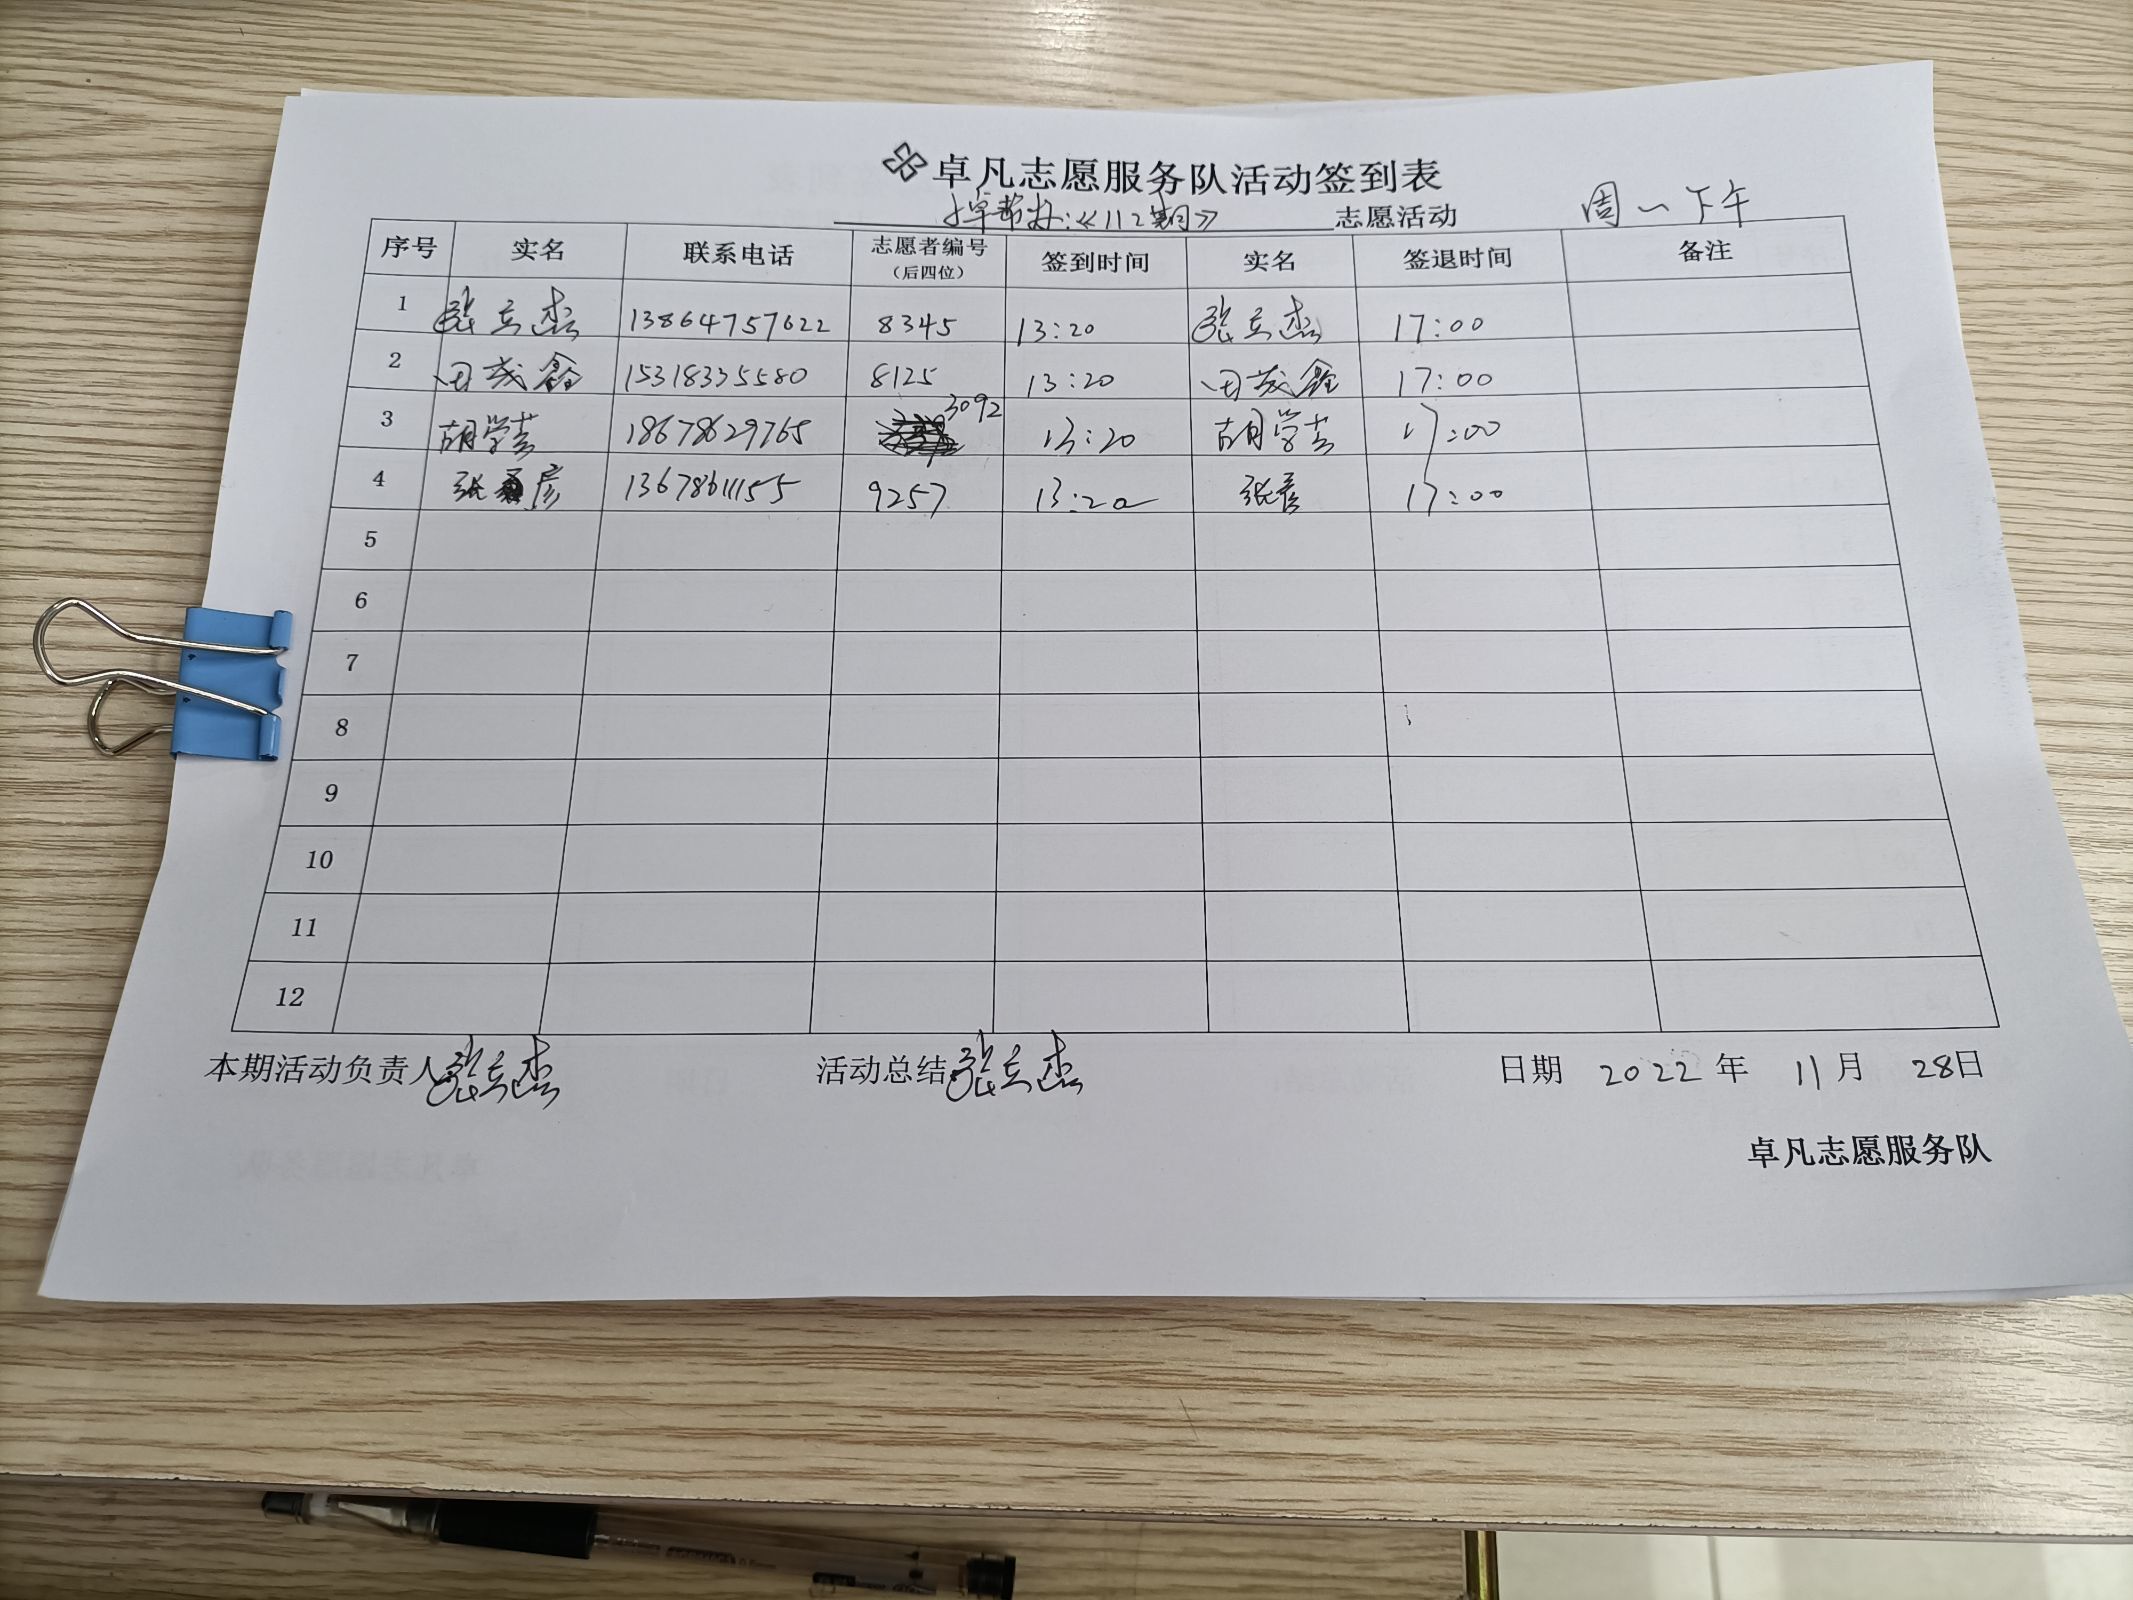 卓凡志愿服务队活动签到表
《112期》 志愿活动 周一下午
序号 实名 联系电话 志愿者编号（后四位） 签到时间 实名 签退时间 备注
1 张立杰 13864757622 8345 13:20 张立杰 17:00
2 田茂鑫 15318335580 8125 13:20 田茂鑫 17:00
3 胡学芸 18678629765 3092 13:20 胡学芸 17:00
4 张彦 13678611155 9257 13:20 张彦 17:00
5
6
7
8
9
10
11
12
本期活动负责人 张立杰 活动总结 张立杰 日期 2022 年 11 月 28日
卓凡志愿服务队